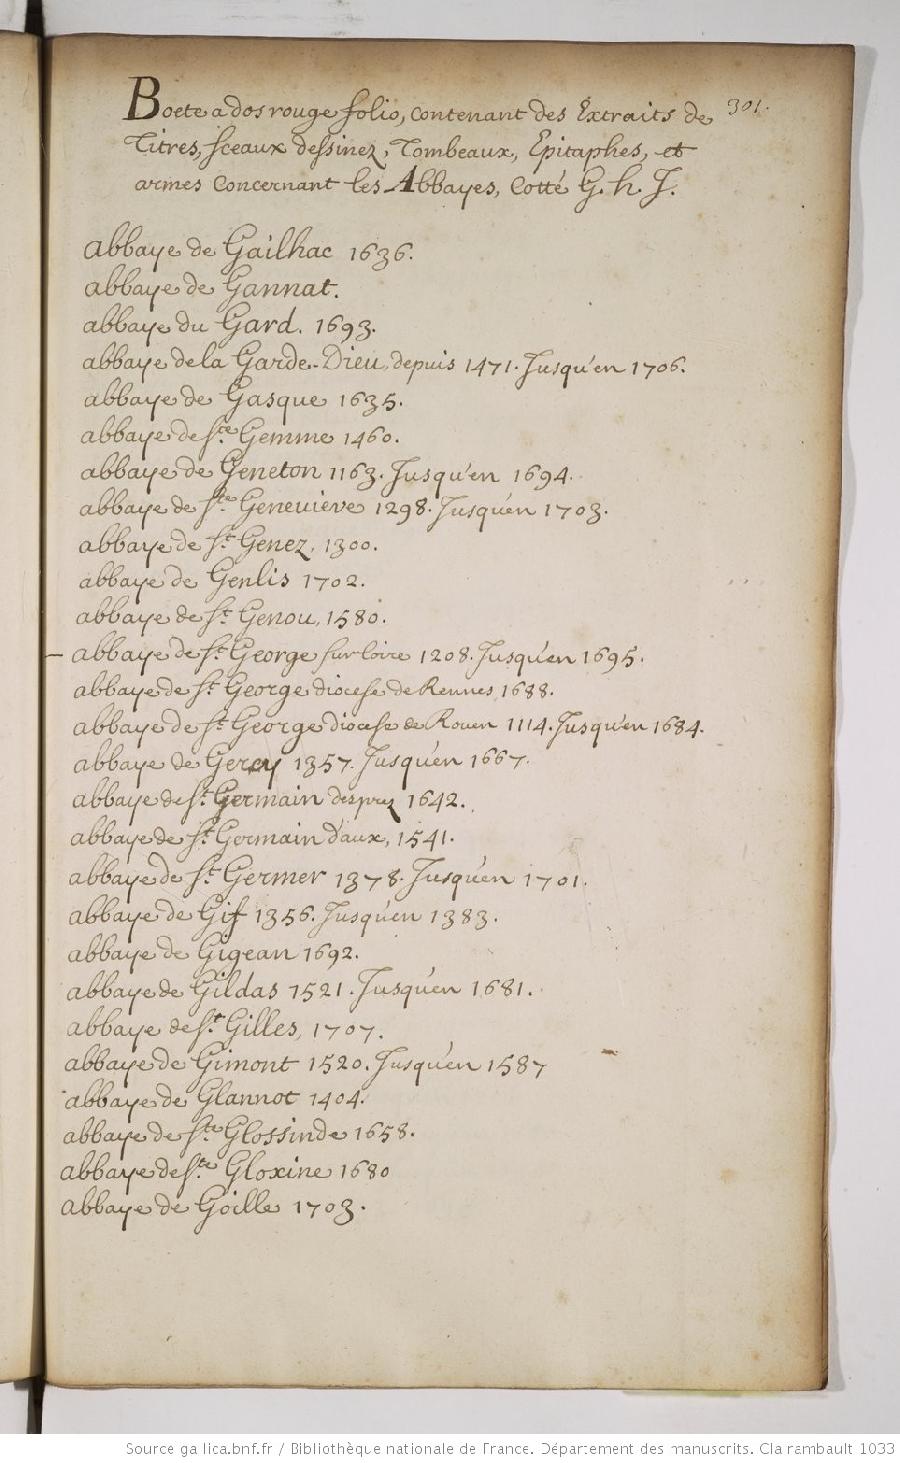 301.
Boete a dos rouge folio, contenant des Extraits de
Titres, sceaux dessinez, Tombeaux, Epitaphes, et
armes concernant les Abbayes, Cotté G. h. J.
abbaye de Gailhac 1636.
abbaye de Gannat.
abbaye du Gard. 1693.
abbaye de la Garde-Dieu, depuis 1471. Jusqu'en 1706.
abbaye de Gasque 1635.
abbaye de ste Gemme 1460.
abbaye de Geneton 1163. Jusqu'en 1694.
abbaye de ste Geneuieve 1298. Jusqu'en 1703.
abbaye de st Genez, 1300.
abbaye de Genlis 1702.
abbaye de st Genou, 1580.
abbaye de st George sur loire 1208. Jusqu'en 1695.
abbaye de st George diocese de Rennes, 1688.
abbaye de st George diocese de Rouen 1114. Jusqu'en 1684.
abbaye de Gercy 1357. Jusqu'en 1667.
abbaye de st Germain desprez 1642.
abbaye de st Germain d'aux, 1541.
abbaye de st Germer 1378. Jusqu'en 1701.
abbaye de Gif 1356. Jusqu'en 1383.
abbaye de Gigean 1692.
abbaye de Gildas 1521. Jusqu'en 1681.
abbaye de st Gilles, 1707.
abbaye de Gimont 1520. Jusqu'en 1587
abbaye de Glannot 1404.
abbaye de ste Glossinde 1658.
abbaye de ste Gloxine 1680
abbaye de Goille 1703.
Source gallica.bnf.fr / Bibliothèque nationale de France. Département des manuscrits. Clairambault 1033